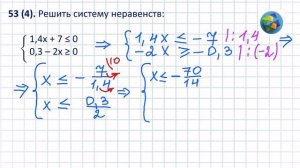 53 (4). Решить систему неравенств:
{ 1,4x + 7 ≤ 0
0,3 − 2x ≥ 0
⇒ { 1,4 x ≤ −7 | : 1,4
−2 x ≥ −0,3 | : (−2) ⇒
⇒ { x ≤ − 7/1,4 \10
x ≤ 0,3/2
⇒ { x ≤ − 70/14